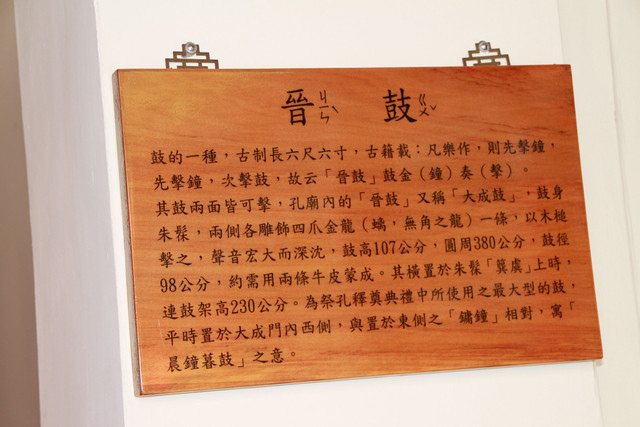 晉ㄐㄧㄣˋ 鼓ㄍㄨˇ
鼓的一種，古制長六尺六寸，古籍載：凡樂作，則先擊鐘，
先擊鐘，次擊鼓，故云「晉鼓」鼓金（鐘）奏（擊）。
其鼓兩面皆可擊，孔廟內的「晉鼓」又稱「大成鼓」，鼓身
朱髹，兩側各雕飾四爪金龍（螭，無角之龍）一條，以木槌
擊之，聲音宏大而深沈，鼓高107公分，圓周380公分，鼓徑
98公分，約需用兩條牛皮蒙成。其橫置於朱髹「簨虡」上時，
連鼓架高230公分。為祭孔釋奠典禮中所使用之最大型的鼓，
平時置於大成門內西側，與置於東側之「鏞鐘」相對，寓「
晨鐘暮鼓」之意。